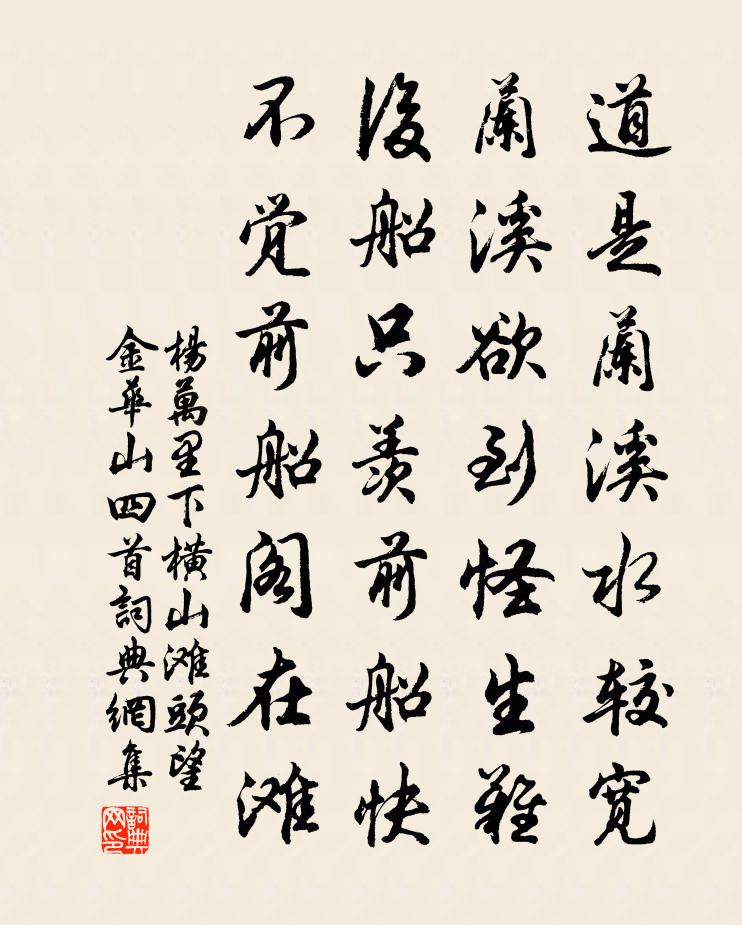 道是蘭溪水较寬
蘭溪欲到怪生難
後船只羨前船快
不觉前船阁在滩
楊萬里下横山滩頭望
金華山四首詞典網集
詞典网印